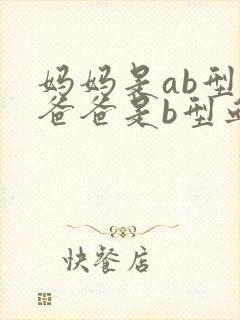 妈妈是ab型
爸爸是b型
快餐店